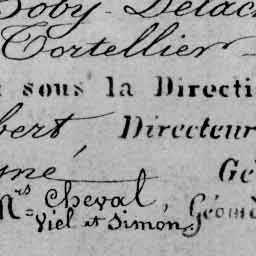 Doby-Delac
Tortellier
sous la Directi
bert Directeur
gné, Gé
Mrs Cheval, Géom
Viel et Simon